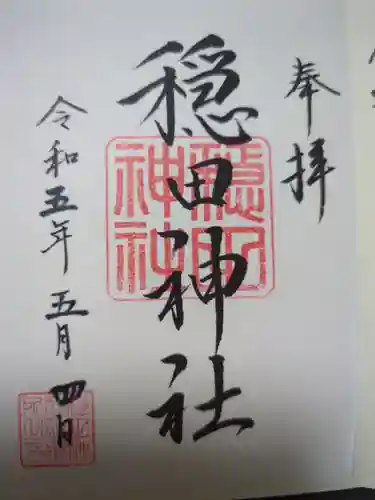 奉拝
穏田神社
穏田神社
令和五年五月四日